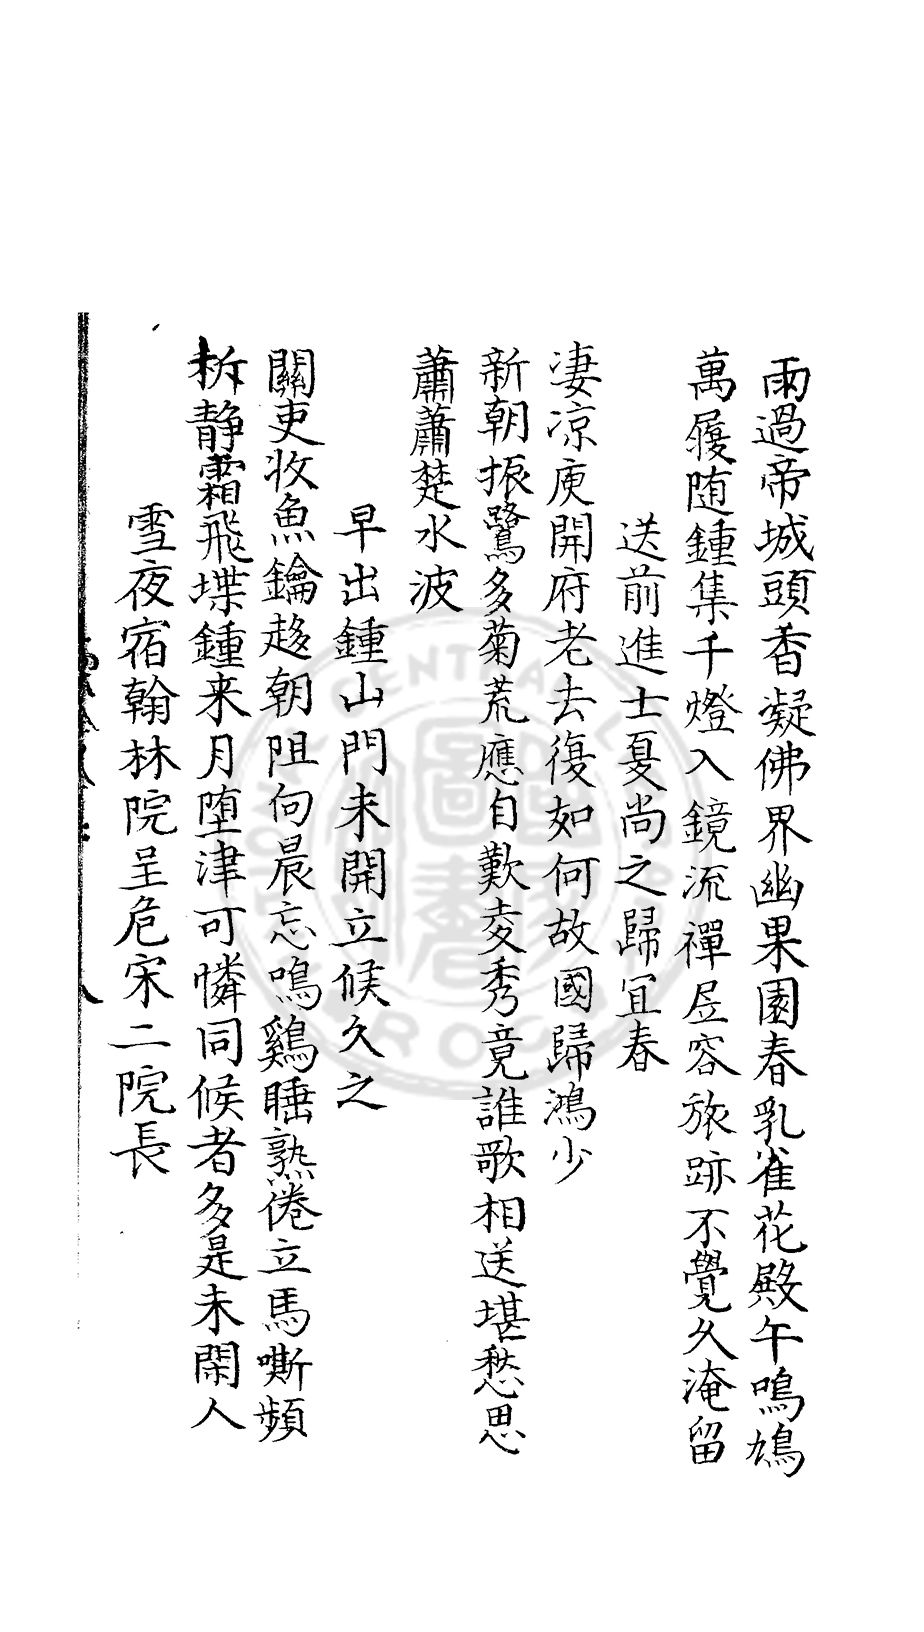 雨過帝城頭香凝佛界幽果園春乳雀花殿午鳴鳩
萬履随鍾集千燈入鏡流禪居容旅跡不覺久淹留
送前進士夏尚之歸宜春
凄凉庾開府老去復如何故國歸鴻少
新朝振鷺多菊荒應自歎麥秀竟誰歌相送堪愁思
蕭蕭楚水波
早出鍾山門未開立候久之
關吏收魚鑰趍朝阻向晨忘鳴鷄睡熟倦立馬嘶頻
柝静霜飛堞鍾来月堕津可憐同候者多是未閑人
雪夜宿翰林院呈危宋二院長